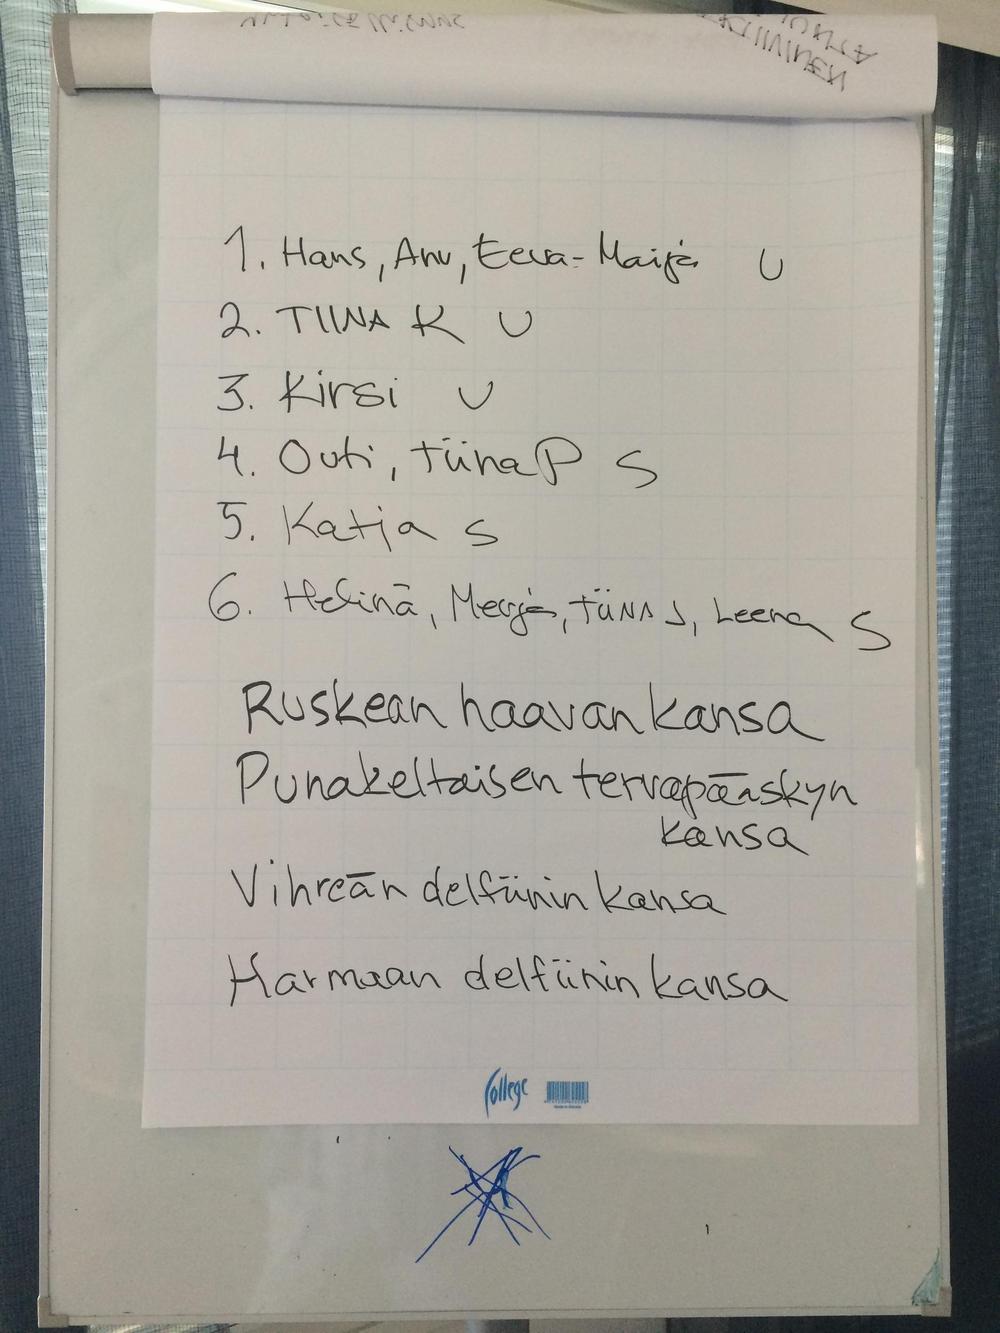 KTIIVINEN
1. Hans, Anu, Eeva-Maija U
2. TIINA K U
3. Kirsi U
4. Outi, Tiina P S
5. Katja S
6. Helinä, Merja, TiiNA J, Leena S
Ruskean haavan kansa
Punakeltaisen tervapääskyn
kansa
Vihreän delfiinin kansa
Harmaan delfiinin kansa
College